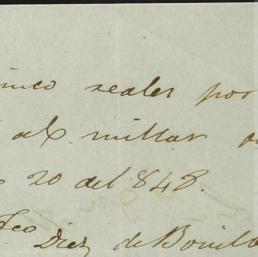 inco reales por
al millar
20 del 848.
Fco Diez de Bonilla